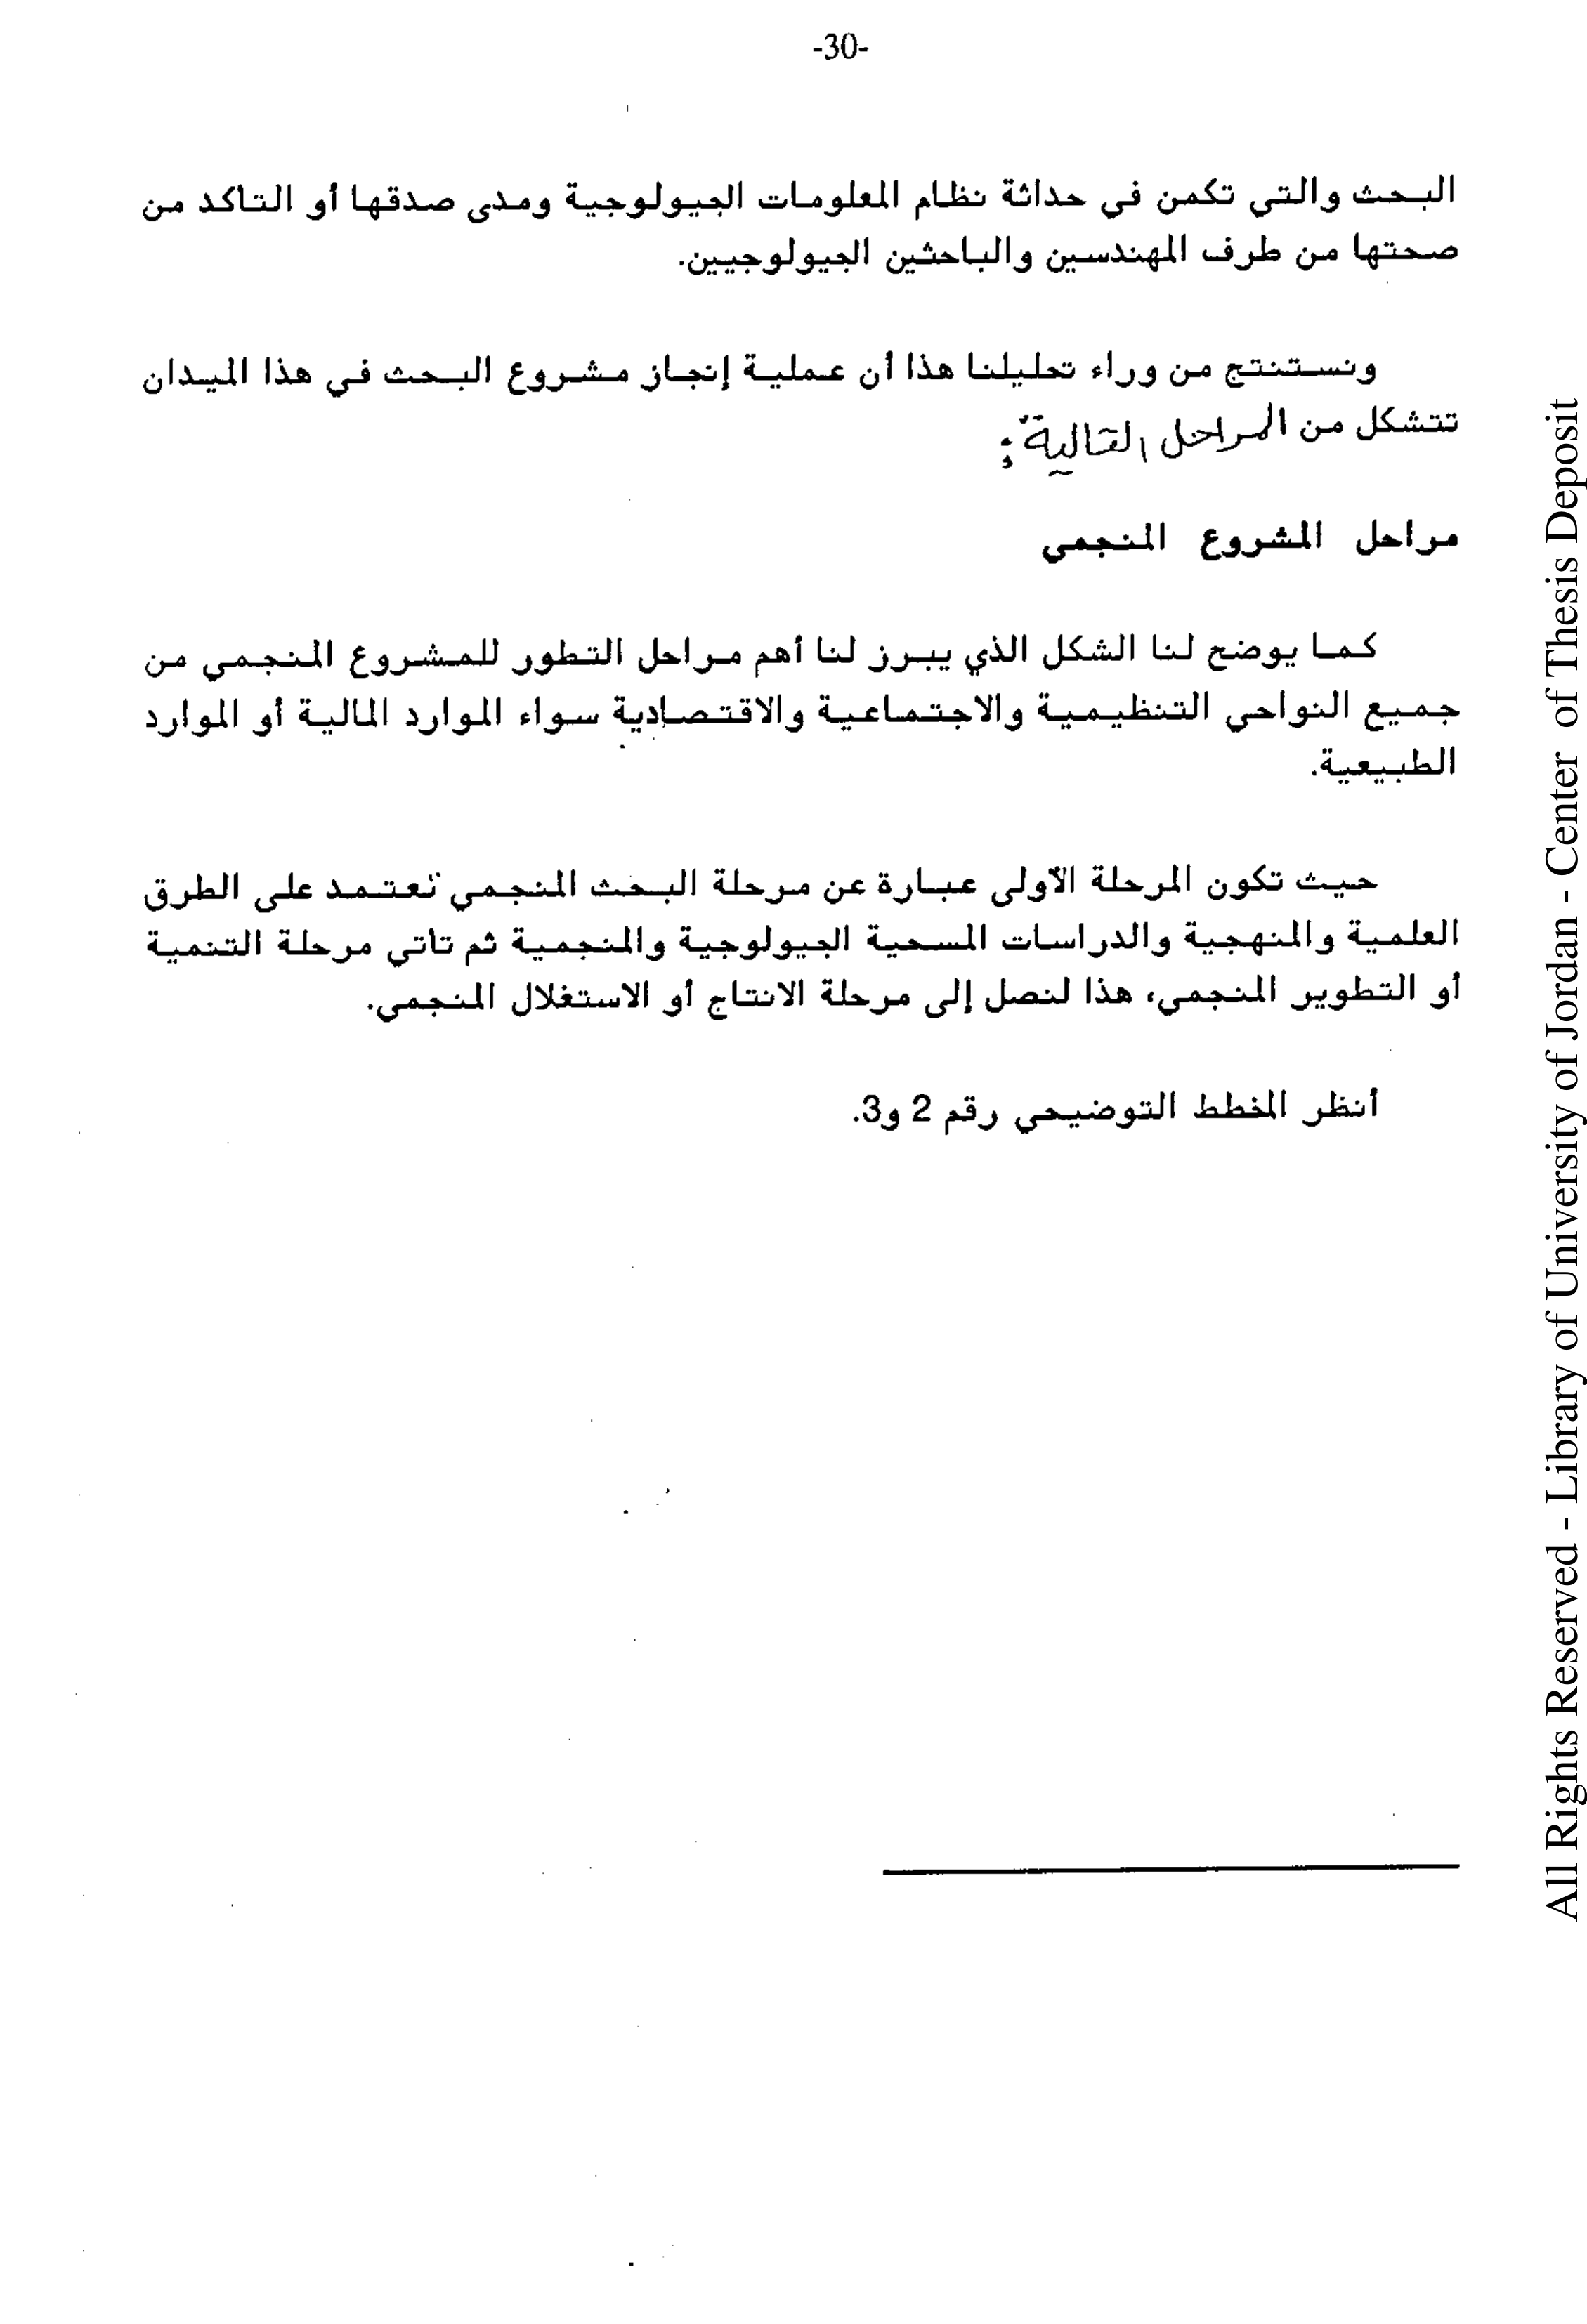 -30-
البحث والتي تكمن في حداثة نظام المعلومات الجيولوجية ومدى صدقها أو التاكد من
صحتها من طرف المهندسين والباحثين الجيولوجيين.
ونستنتج من وراء تحليلنا هذا أن عملية إنجاز مشروع البحث في هذا الميدان
تتشكل من المراحل التالية:
مراحل المشروع المنجمي
كما يوضح لنا الشكل الذي يبرز لنا أهم مراحل التطور للمشروع المنجمي من
جميع النواحي التنظيمية والاجتماعية والاقتصادية سواء الموارد المالية أو الموارد
الطبيعية.
حيث تكون المرحلة الأولى عبارة عن مرحلة البحث المنجمي تعتمد على الطرق
العلمية والمنهجية والدراسات المسحية الجيولوجية والمنجمية ثم تاتي مرحلة التنمية
أو التطوير المنجمي، هذا لنصل إلى مرحلة الانتاج أو الاستغلال المنجمي.
أنظر المخطط التوضيحي رقم 2 و3.
All Rights Reserved - Library of University of Jordan - Center of Thesis Deposit